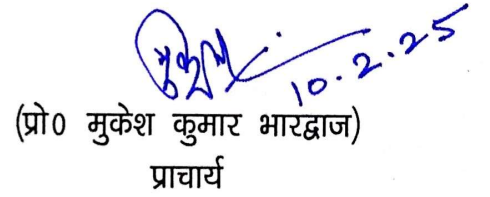 10.2.25
(प्रो0 मुकेश कुमार भारद्वाज)
प्राचार्य